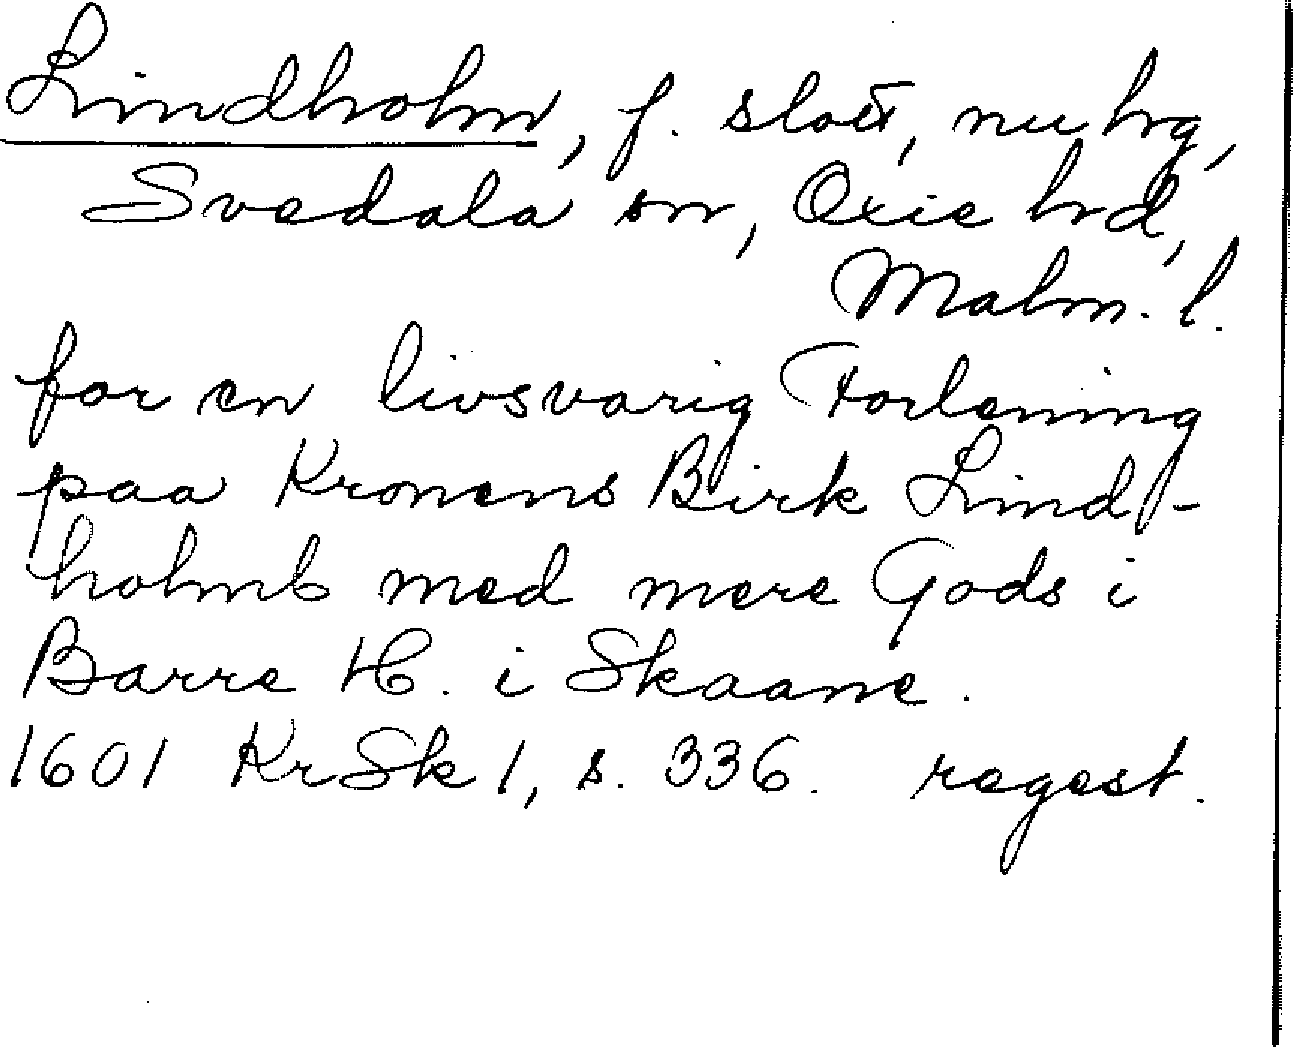 Lindholm, f. slott, nu hrg,
Svedala sn, Oxie hrd,
Malm. l.
for en livsvarig Forlening
paa Kronens Birk Lind-
holmb med mere Gods i
Barre H. i Skaane.
1601 KrSk 1, s. 336. regest.